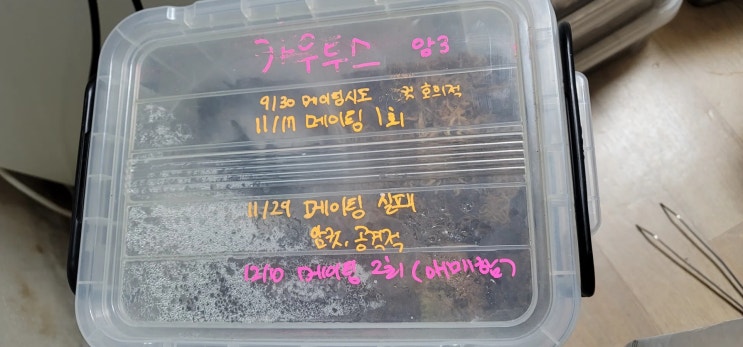 카우투스 암3
9/30 메이팅시도 굿 호의적
11/17 메이팅 1회
11/29 메이팅 실패
암컷, 공격적
12/10 메이팅 2회 (애매함)